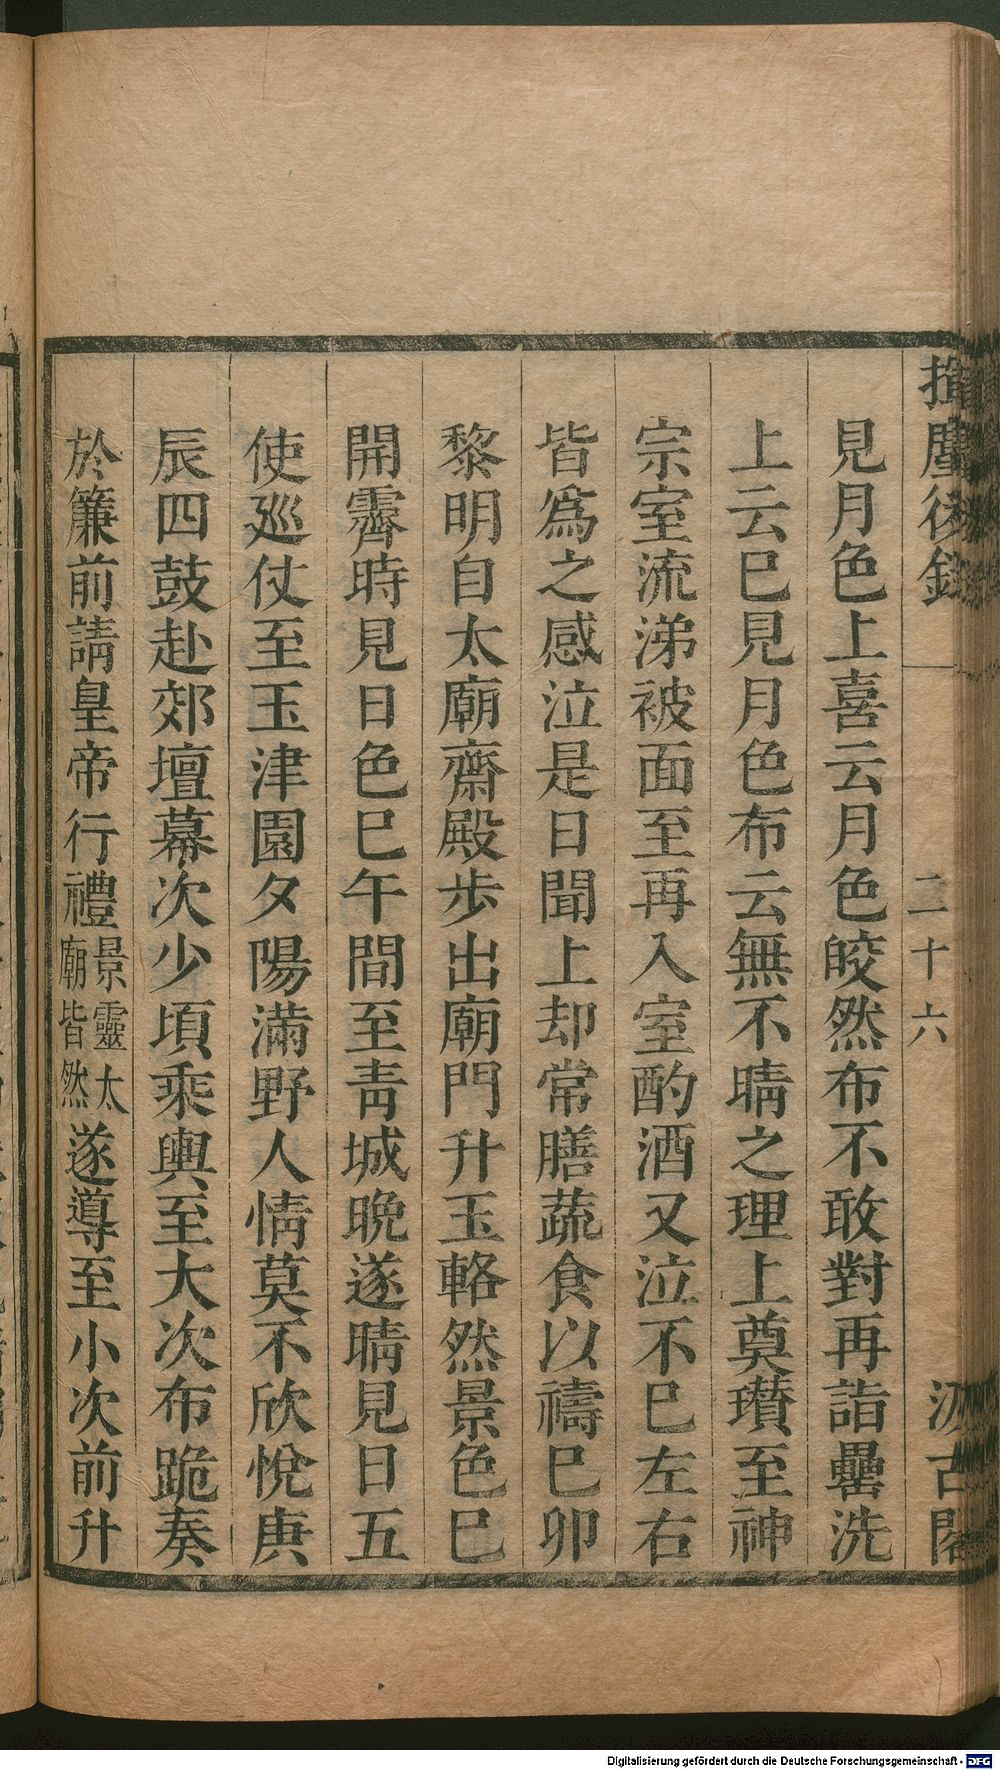 揮麈後錄
二十六
汲古閣
見月色上喜云月色皎然布不敢對再詣罍洗
上云巳見月色布云無不晴之理上奠瓚至神
宗室流涕被面至再入室酌酒又泣不巳左右
皆爲之感泣是日聞上却常膳蔬食以禱巳卯
黎明自太廟齋殿步出廟門升玉輅然景色巳
開霽時見日色巳午間至青城晚遂晴見日五
使廵仗至玉津園夕陽滿野人情莫不欣悅庚
辰四鼓赴郊壇幕次少頃乘輿至大次布跪奏
於簾前請皇帝行禮景靈太廟皆然遂導至小次前升
Digitalisierung gefördert durch die Deutsche Forschungsgemeinschaft - DFG